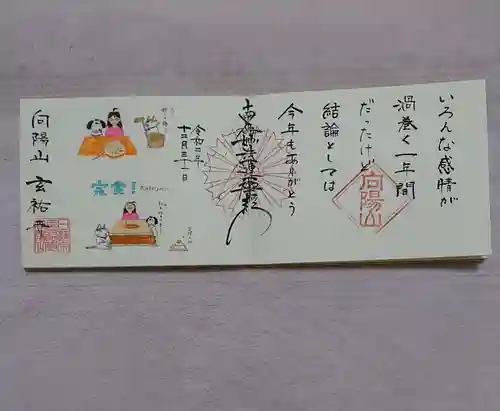 いろんな感情が
渦巻く一年間
だったけど
結論としては
今年もありがとう
向陽山
令和二年
十二月三十一日
完食!
向陽山 玄祐